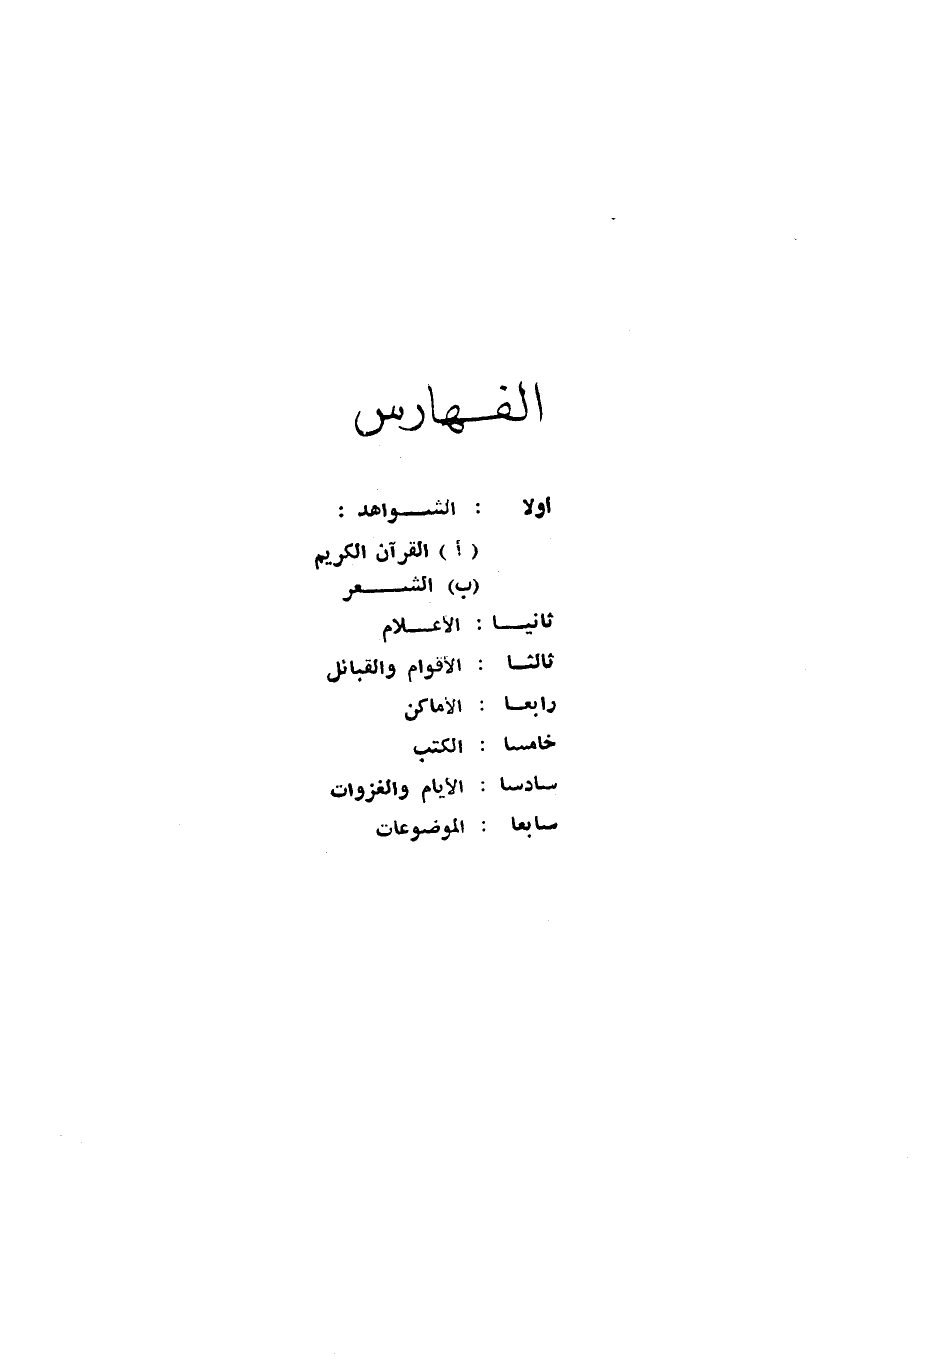 الفهارس
أولا : الشواهد :
( أ ) القرآن الكريم
(ب) الشعر
ثانيا : الأعلام
ثالثا : الأقوام والقبائل
رابعا : الأماكن
خامسا : الكتب
سادسا : الأيام والغزوات
سابعا : الموضوعات